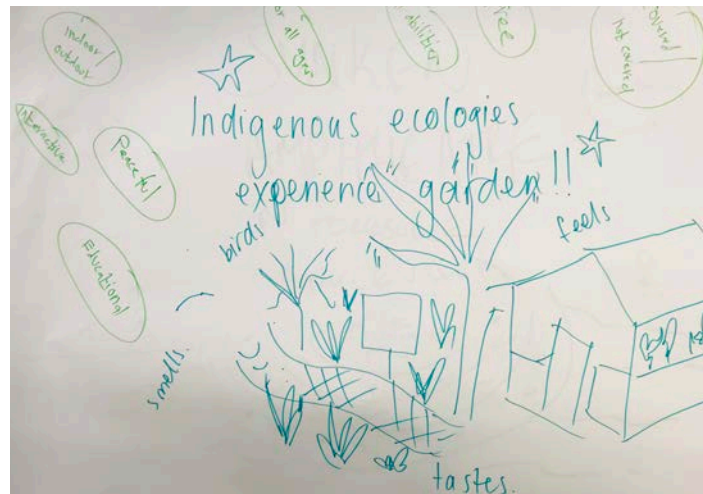 Indoor/
outdoor
for all ages
abilities
Free
covered/
not covered
Interactive
Peaceful
Educational
Indigenous ecologies
experience garden!!
birds
feels
smells.
tastes.